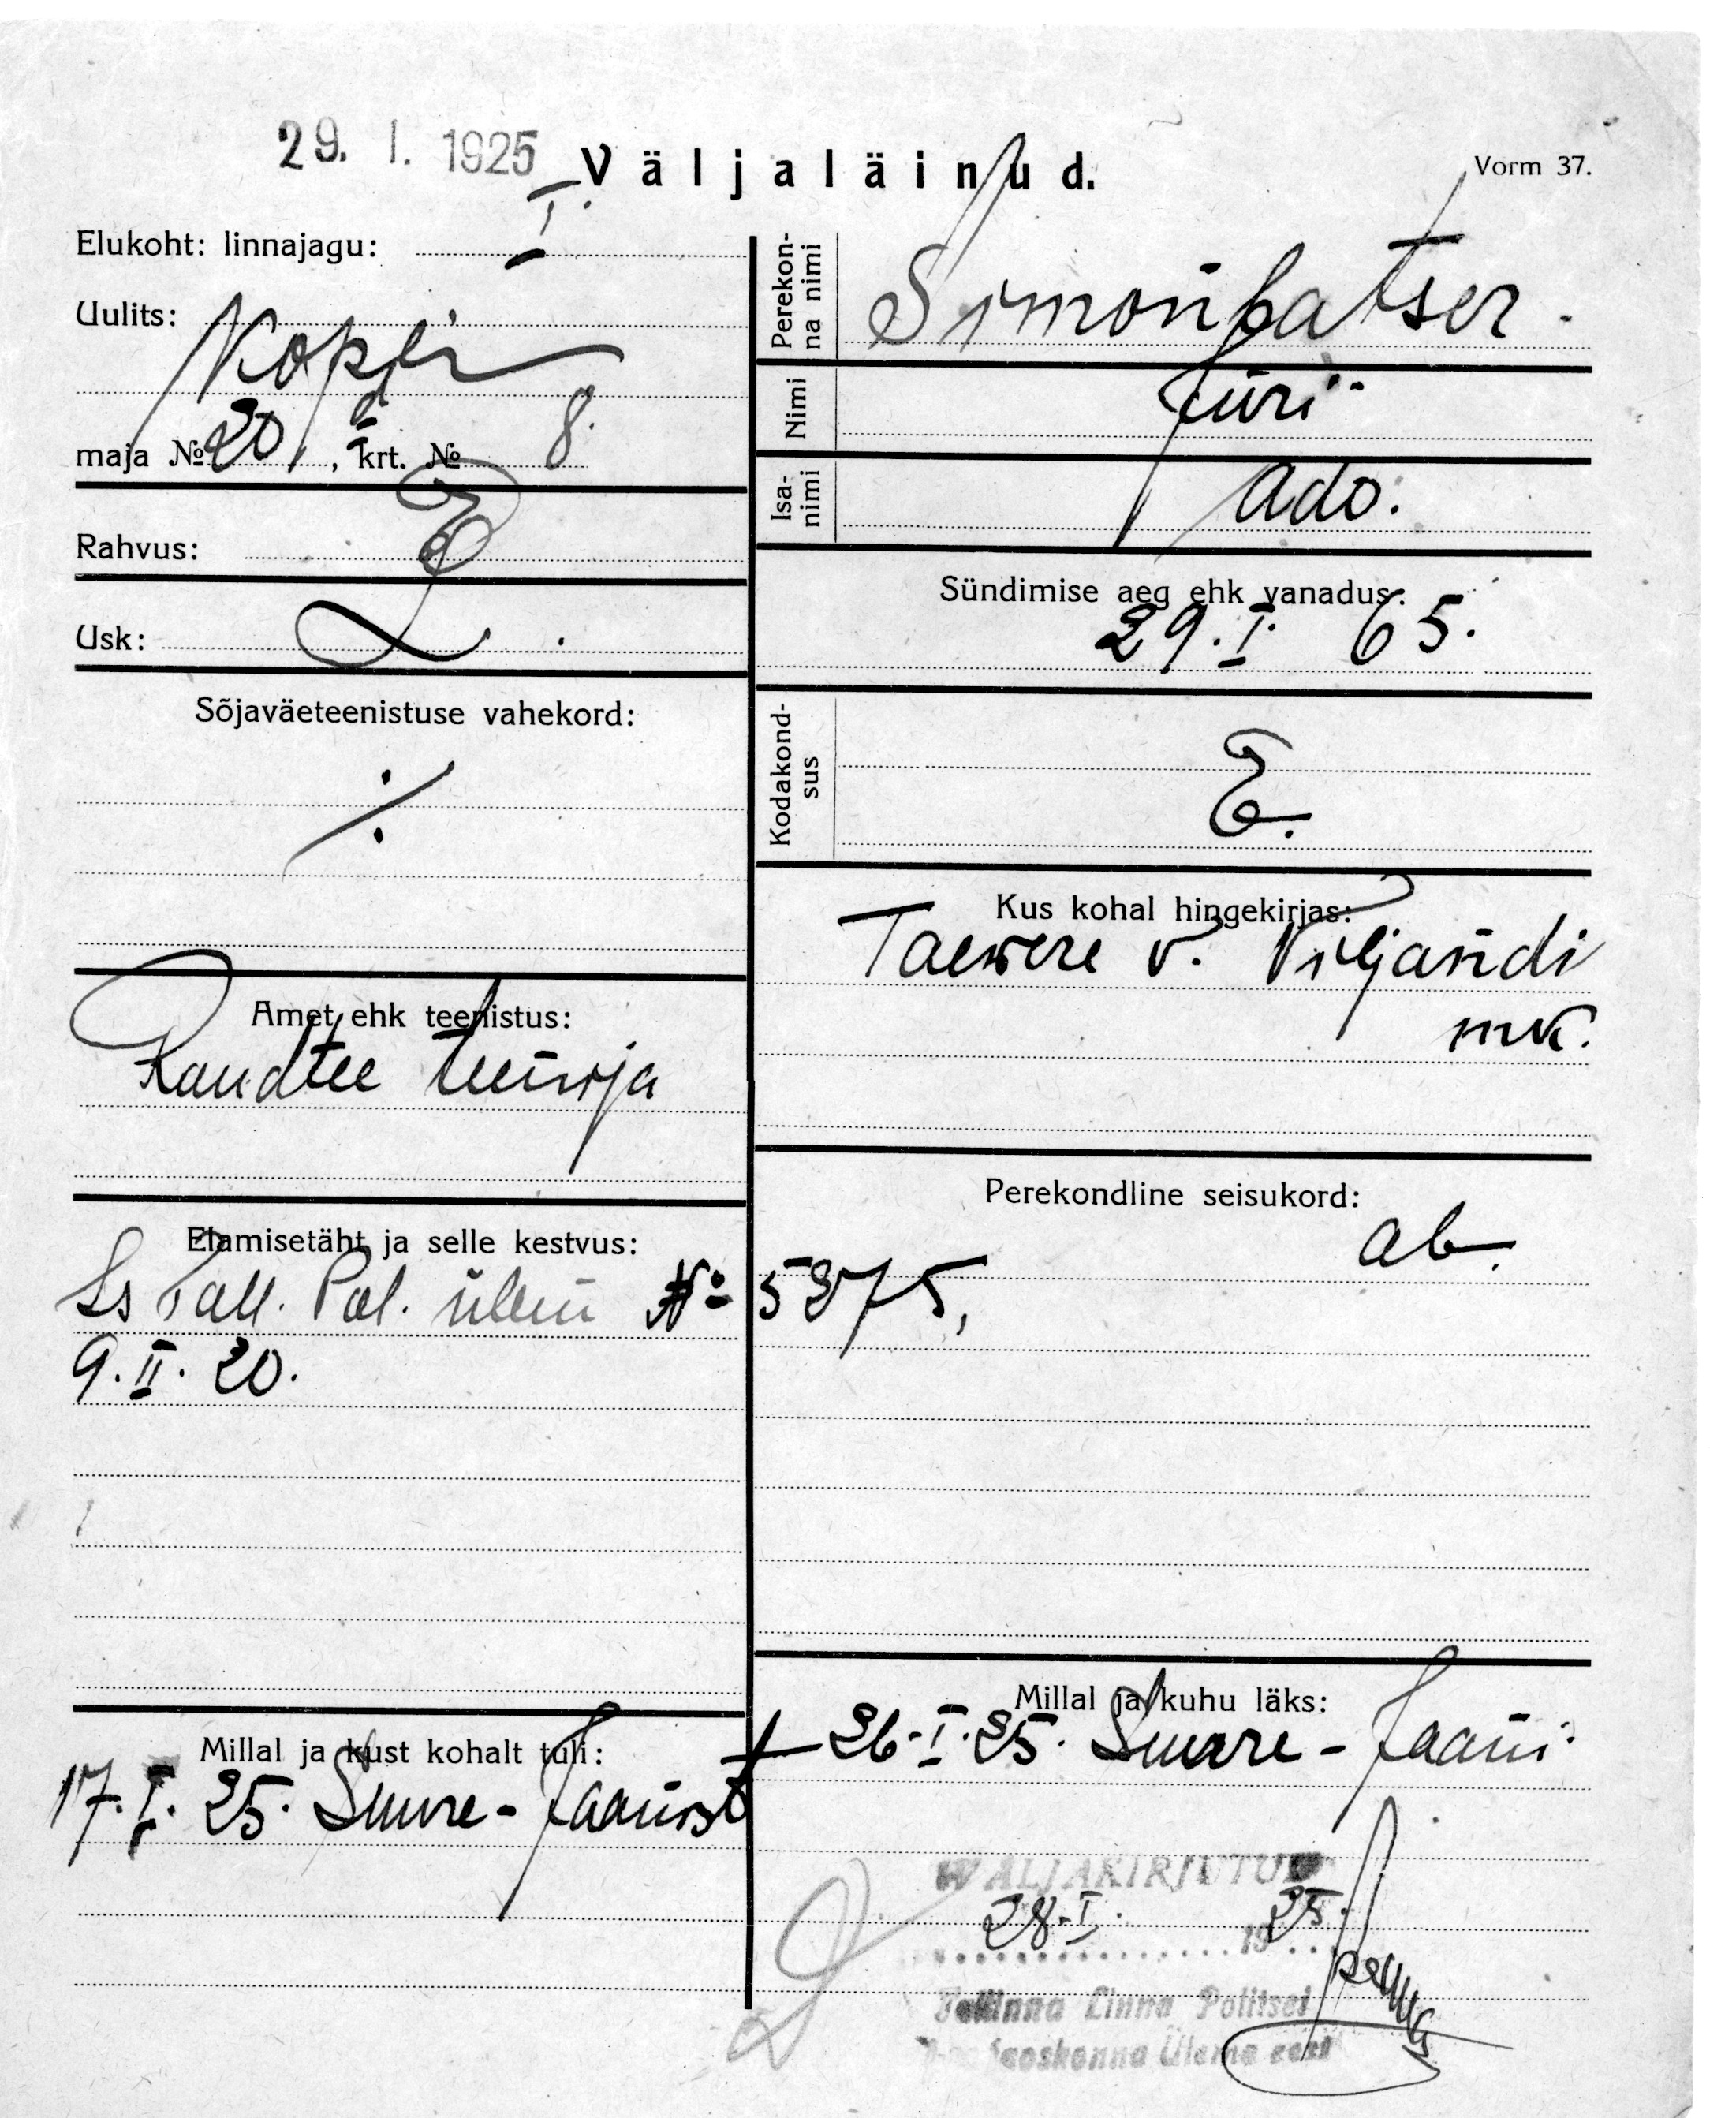 29. I. 1925
Väljaläinud.
Vorm 37.
Elukoht: linnajagu: I.
Uulits: Kopli
maja № 20, krt. № 8.
Rahvus: E
Usk: L.
Sõjaväeteenistuse vahekord:
./.
Amet ehk teenistus:
Raudtee teenija
Elamisetäht ja selle kestvus:
Tall. Pol. ülem № 5375,
9. II. 20.
Millal ja kust kohalt tuli:
17. I. 25. Suure-Jaanist
Perekonna nimi
Simonlatser.
Nimi
Jüri
Isanimi
Ado.
Sündimise aeg ehk vanadus:
29. I. 65.
Kodakondsus
E.
Kus kohal hingekirjas:
Taewere v. Viljandi
mk.
Perekondline seisukord:
ab.
Millal ja kuhu läks:
26. I. 25. Suure-Jaani.
WÄLJAKIRJUTUD
28. I. 1925.
Tallinna Linna Politsei
jaoskonna Ülema eest